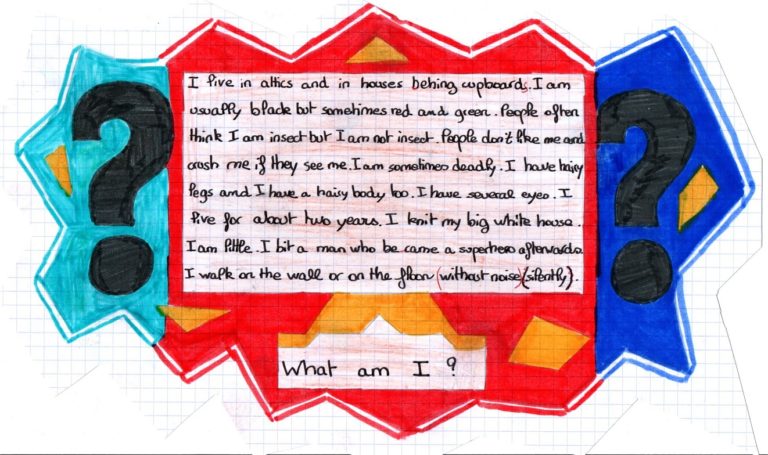 I live in attics and in houses behing cupboards. I am
usually black but sometimes red and green. People often
think I am insect but I am not insect. People don't like me and
crash me if they see me. I am sometimes deadly. I have hairy
legs and I have a hairy body too. I have several eyes. I
live for about two years. I knit my big white house.
I am little. I bit a man who be came a superhero afterwards.
I walk on the wall or on the floor (without noise) (silently).
What am I ?